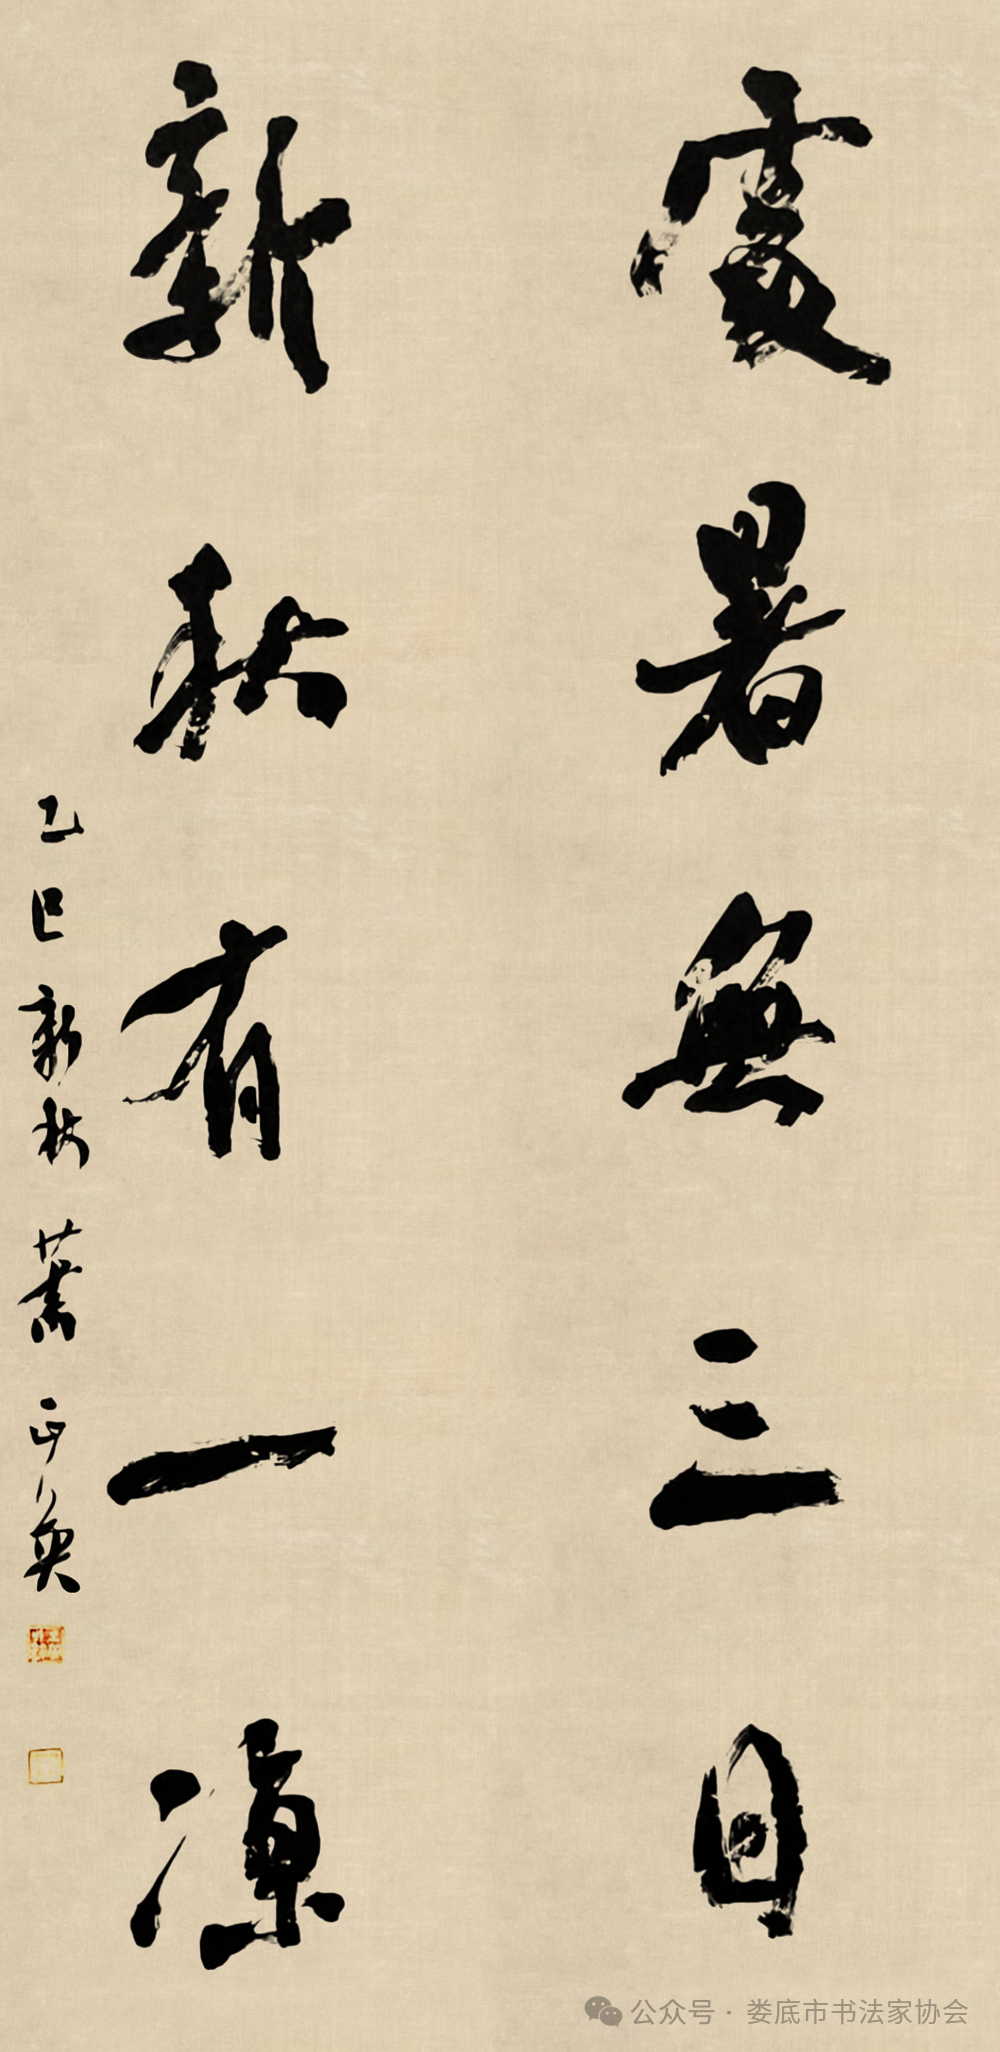 處暑無三日
新秋有一凉
乙巳新秋 蕭正奠
公众号·娄底市书法家协会